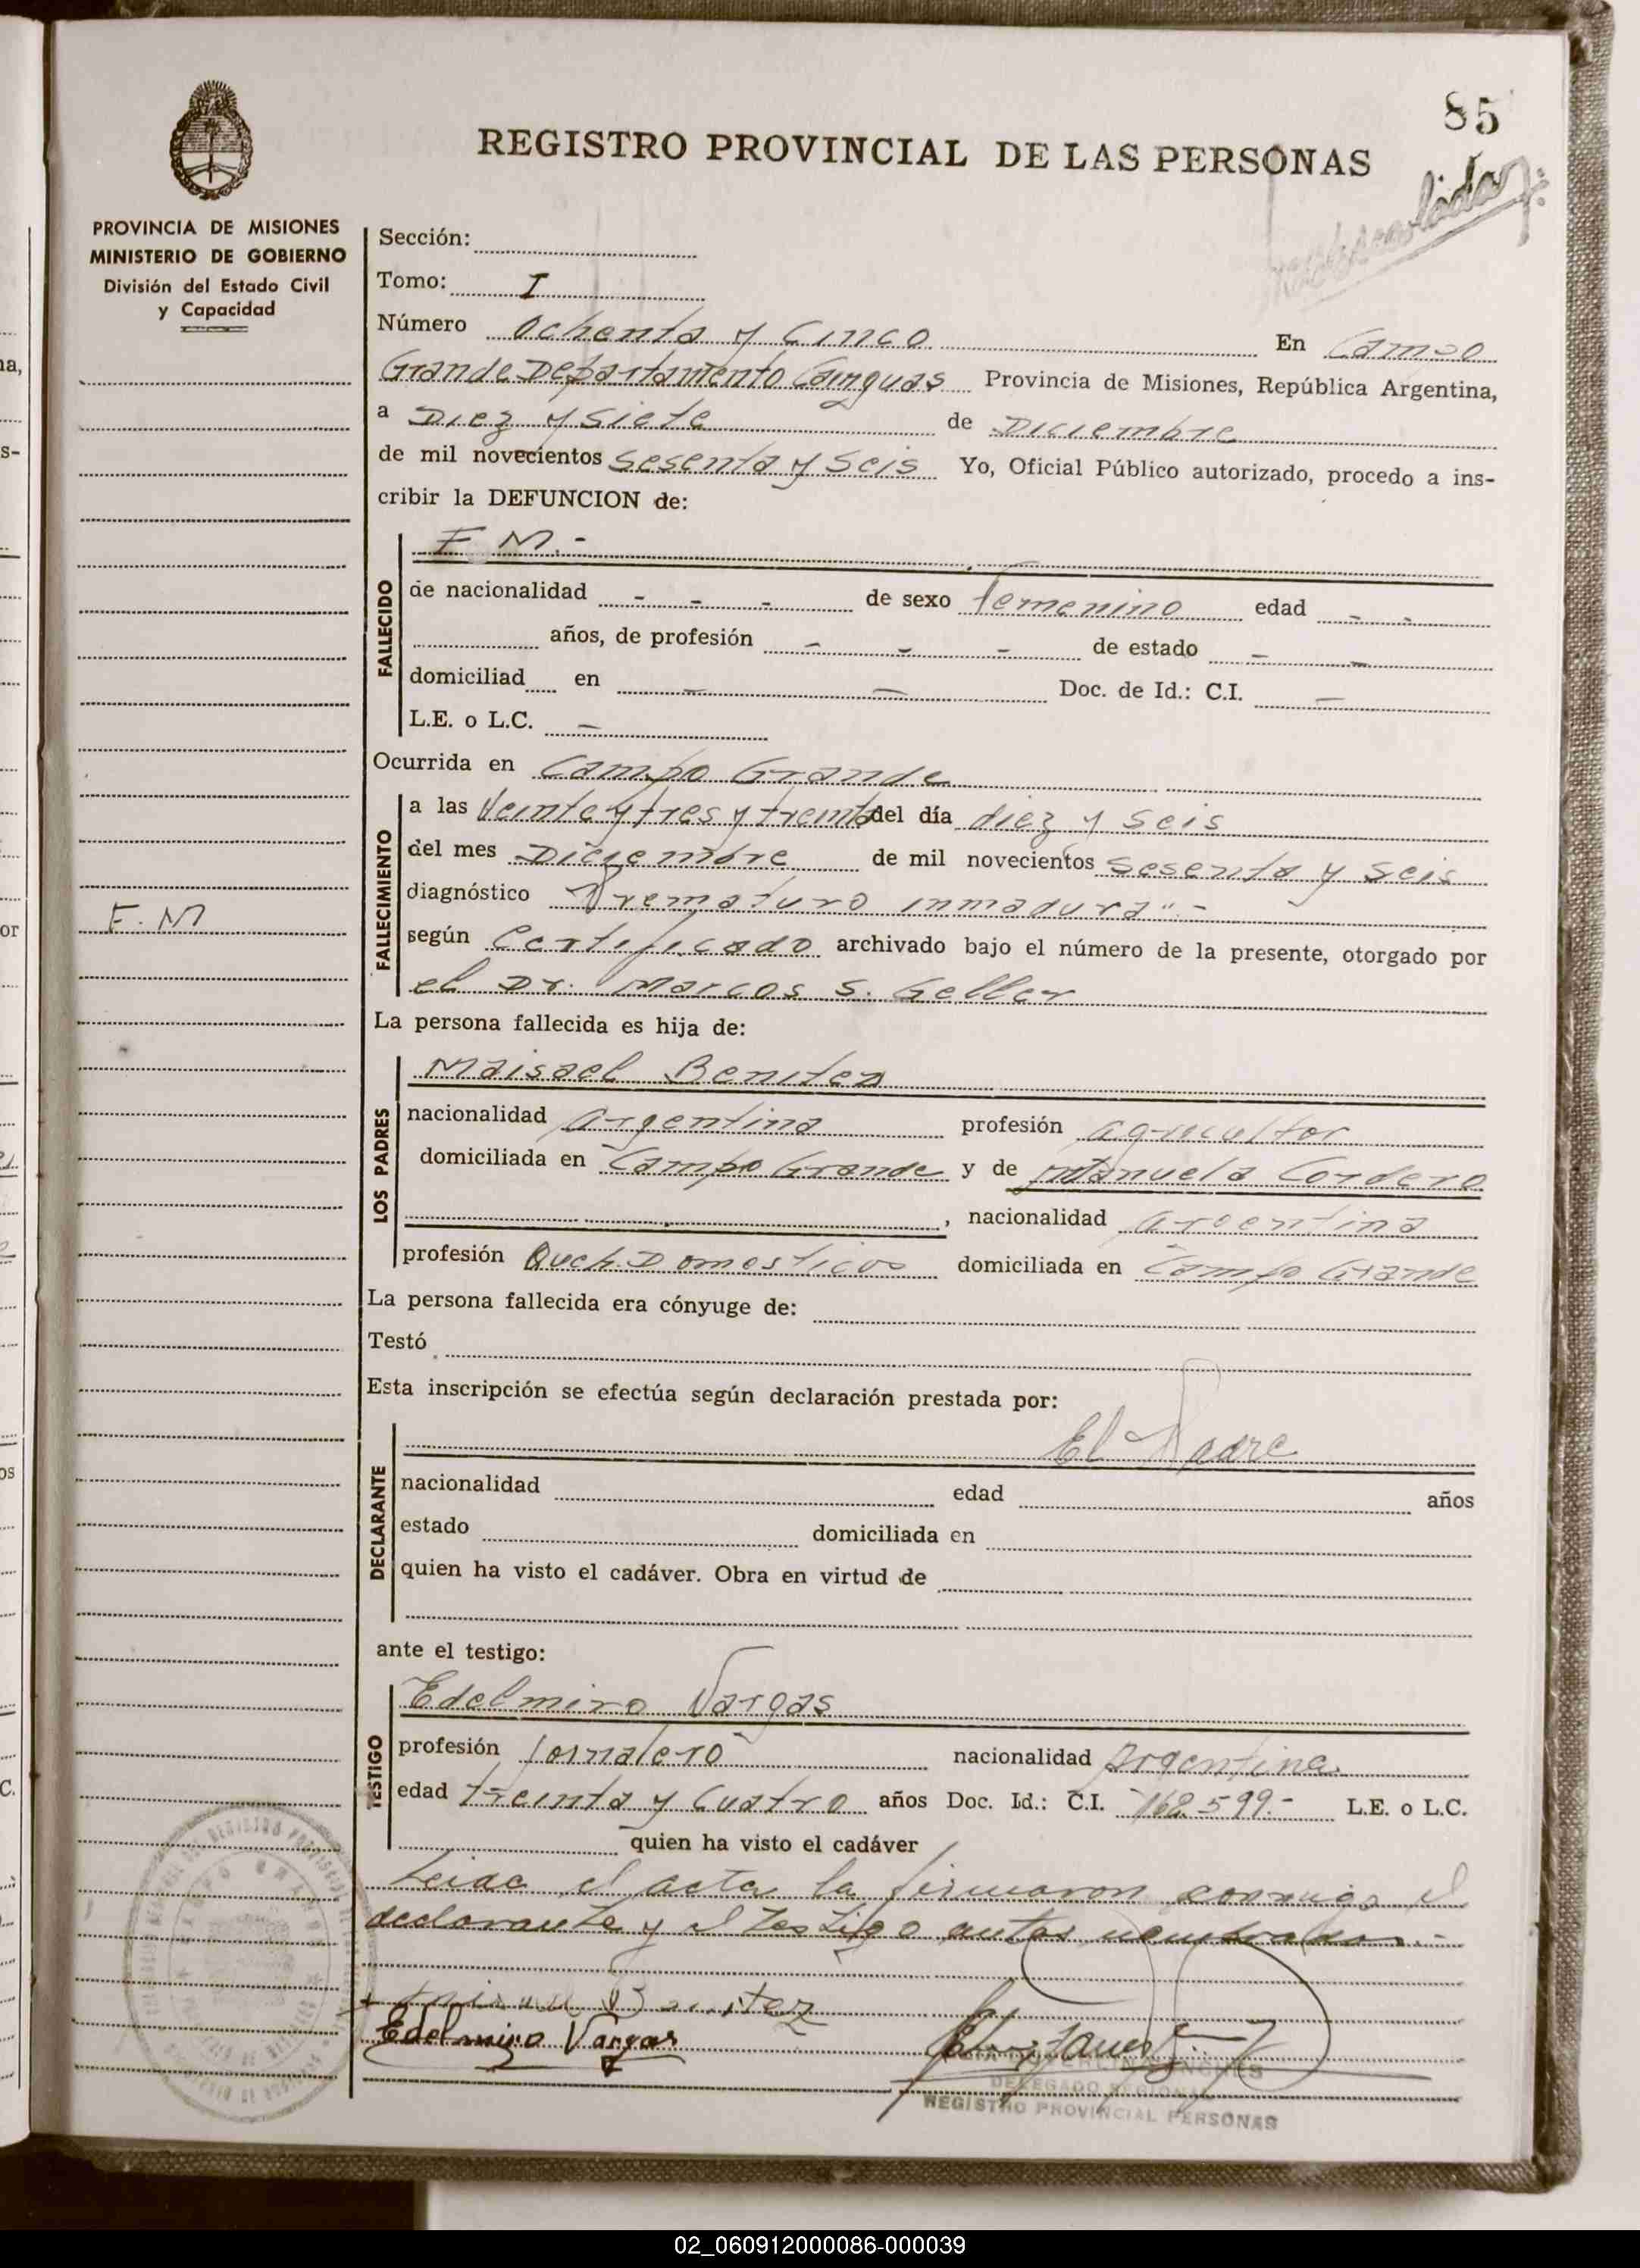 85
REGISTRO PROVINCIAL DE LAS PERSONAS
PROVINCIA DE MISIONES
MINISTERIO DE GOBIERNO
División del Estado Civil
y Capacidad
Sección:
Tomo: I
Número Ochenta y Cinco En Campo
Grande Departamento Cainguas Provincia de Misiones, República Argentina,
a Diez y Siete de Diciembre
de mil novecientos Sesenta y Seis Yo, Oficial Público autorizado, procedo a ins-
cribir la DEFUNCION de:
FALLECIDO
F M.-
de nacionalidad - - - de sexo Femenino edad - -
años, de profesión - - - de estado - -
domiciliad en - - Doc. de Id.: C.I. -
L.E. o L.C. -
Ocurrida en Campo Grande
FALLECIMIENTO
a las Veinte y tres y treinta del día diez y seis
del mes Diciembre de mil novecientos sesenta y seis
diagnóstico Prematuro inmadura".-
según Certificado archivado bajo el número de la presente, otorgado por
el Dr. Marcos S. Geller
F. M
La persona fallecida es hija de:
LOS PADRES
Maisael Benitez
nacionalidad argentina profesión agricultor
domiciliada en Campo Grande y de Manuela Cordero
, nacionalidad argentina
profesión Queh. Domesticos domiciliada en Campo Grande
La persona fallecida era cónyuge de:
Testó
Esta inscripción se efectúa según declaración prestada por:
DECLARANTE
El Padre
nacionalidad edad años
estado domiciliada en
quien ha visto el cadáver. Obra en virtud de
ante el testigo:
TESTIGO
Edelmiro Vargas
profesión Jornalero nacionalidad argentina
edad treinta y cuatro años Doc. Id.: C.I. 162.599.- L.E. o L.C.
quien ha visto el cadáver
Leida el acta la firmaron conmigo el
declarante y el testigo antes nombrados.-
Benitez
Edelmiro Vargas
DELEGADO REGIONAL
REGISTRO PROVINCIAL PERSONAS
02_060912000086-000039